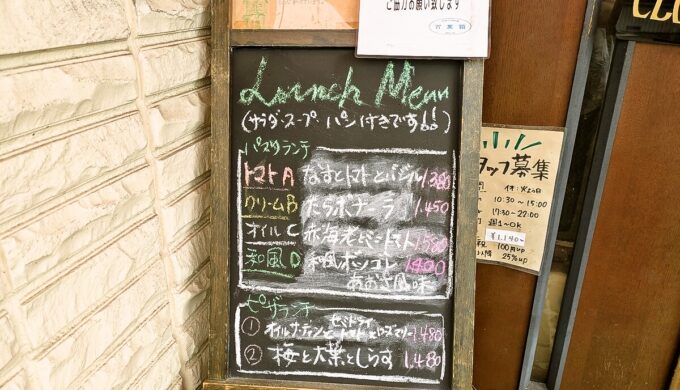 ご協力お願い致します
Lunch Menu
(サラダ・スープ パン付きです!!)
パスタランチ
トマト A なすとトマトとバジル 1,380
クリーム B たらボナーラ 1,450
オイル C 赤海老とセミドライトマト 1,580
和風 D 和風ボンゴレ 1400
あおさ風味
ピザランチ
① オイルサーディンとセミドライトマトとローズマリー 1,480
② 梅と大葉としらす 1,480
タッフ募集
10:30～15:00
17:30～22:00
週1～OK
¥1,140～
100円up
25%up